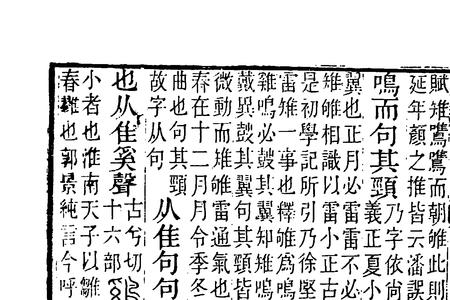 賦雉鷕鷕而朝雊此則
延年顏之推皆云潘誤
鳴而句其頸
乃字依尙
義正夏小
翼也正月必雷雷不必
雉雊相識以雷小正古
是初學記所引乃徐堅
雷雉一事也釋雊爲鳴
雞鳴必鼓其翼知雉鳴
異鼓其翼句其頸皆
微動而雉雊雷通氣也
春在十二月月令季冬
曲也句其頸
故字从句
从隹句句
也从隹奚聲
古兮切
十六部
小者也淮南天子以雛
春也郭景純言今呼